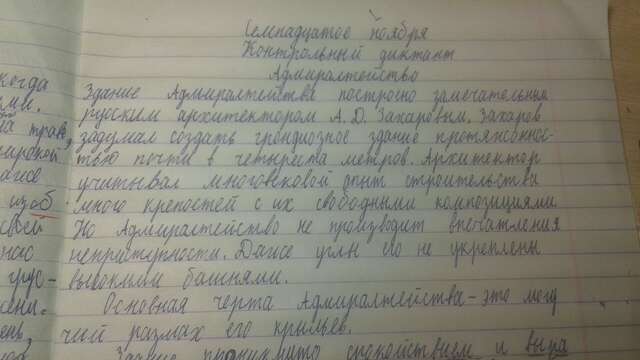 Семнадцатое ноября
Контрольный диктант
Адмиралтейство
когда Здание Адмиралтейства построено замечательным
ми. русским архитектором А. Д. Захаровым. Захаров
на траве, задумал создать грандиозное здание протяжённос-
ирокой тью почти в четыреста метров. Архитектор
учитывал многовековой опыт строительства
из об много крепостей с их свободными композициями
своей Но Адмиралтейство не производит впечатления
нас неприступности. Даже углы его не укреплены
грус- высокими башнями.
Основная черта Адмиралтейства - это могу
ень, чий размах его крыльев.
Здание проникнуто спокойствием и